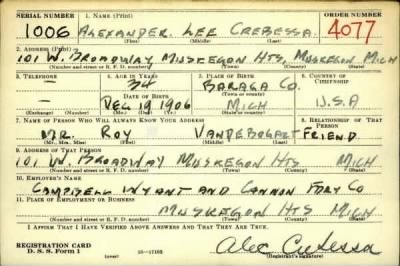 SERIAL NUMBER 1. NAME (Print) ORDER NUMBER
1006 ALEXANDER LEE CREBESSA 4077
(First) (Middle) (Last)
2. ADDRESS (Print)
101 W. BROADWAY MUSKEGON HTS. MUSKEGON MICH
(Number and street or R. F. D. number) (Town) (County) (State)
3. TELEPHONE 4. AGE IN YEARS 5. PLACE OF BIRTH 6. COUNTRY OF CITIZENSHIP
— 34 BARAGA CO.
DATE OF BIRTH (Town or county)
— DEC 19 1906 MICH U.S.A
(Mo.) (Day) (Yr.) (State or country)
7. NAME OF PERSON WHO WILL ALWAYS KNOW YOUR ADDRESS 8. RELATIONSHIP OF THAT PERSON
MR. ROY VANDEBOGART FRIEND
(Mr., Mrs., Miss) (First) (Middle) (Last)
9. ADDRESS OF THAT PERSON
101 W. BROADWAY MUSKEGON HTS MICH
(Number and street or R. F. D. number) (Town) (County) (State)
10. EMPLOYER'S NAME
CAMPBELL WYANT AND CANNON FDRY CO
11. PLACE OF EMPLOYMENT OR BUSINESS
MUSKEGON HTS MICH
(Number and street or R. F. D. number) (Town) (County) (State)
I AFFIRM THAT I HAVE VERIFIED ABOVE ANSWERS AND THAT THEY ARE TRUE.
REGISTRATION CARD
D. S. S. Form 1 16—17105 (Registrant's signature)